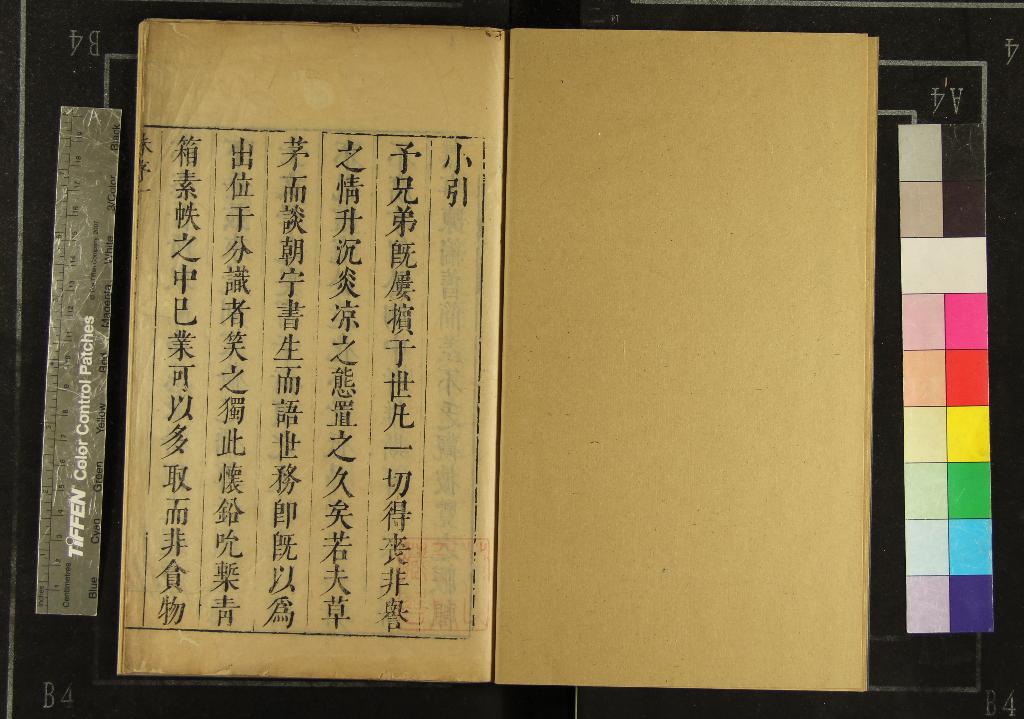 小引
予兄弟旣屢擯于世凡一切得喪非譽
之情升沉炎凉之態置之久矣若夫草
茅而談朝宁書生而語世務卽旣以爲
出位干分識者笑之獨此懷鉛吮槧靑
箱素帙之中已業可以多取而非貪物
B4
A4
4
B4
B4
TIFFEN Color Control Patches
Centimetres
Blue
Cyan
Green
Yellow
Red
Magenta
White
3/Color
Black